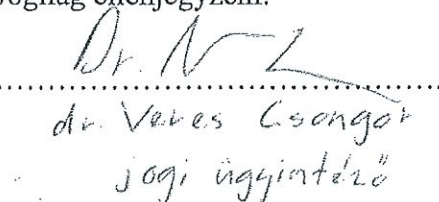 ellenjegyzem:
Dr.
dr. Veres Csongor
jogi ügyintéző